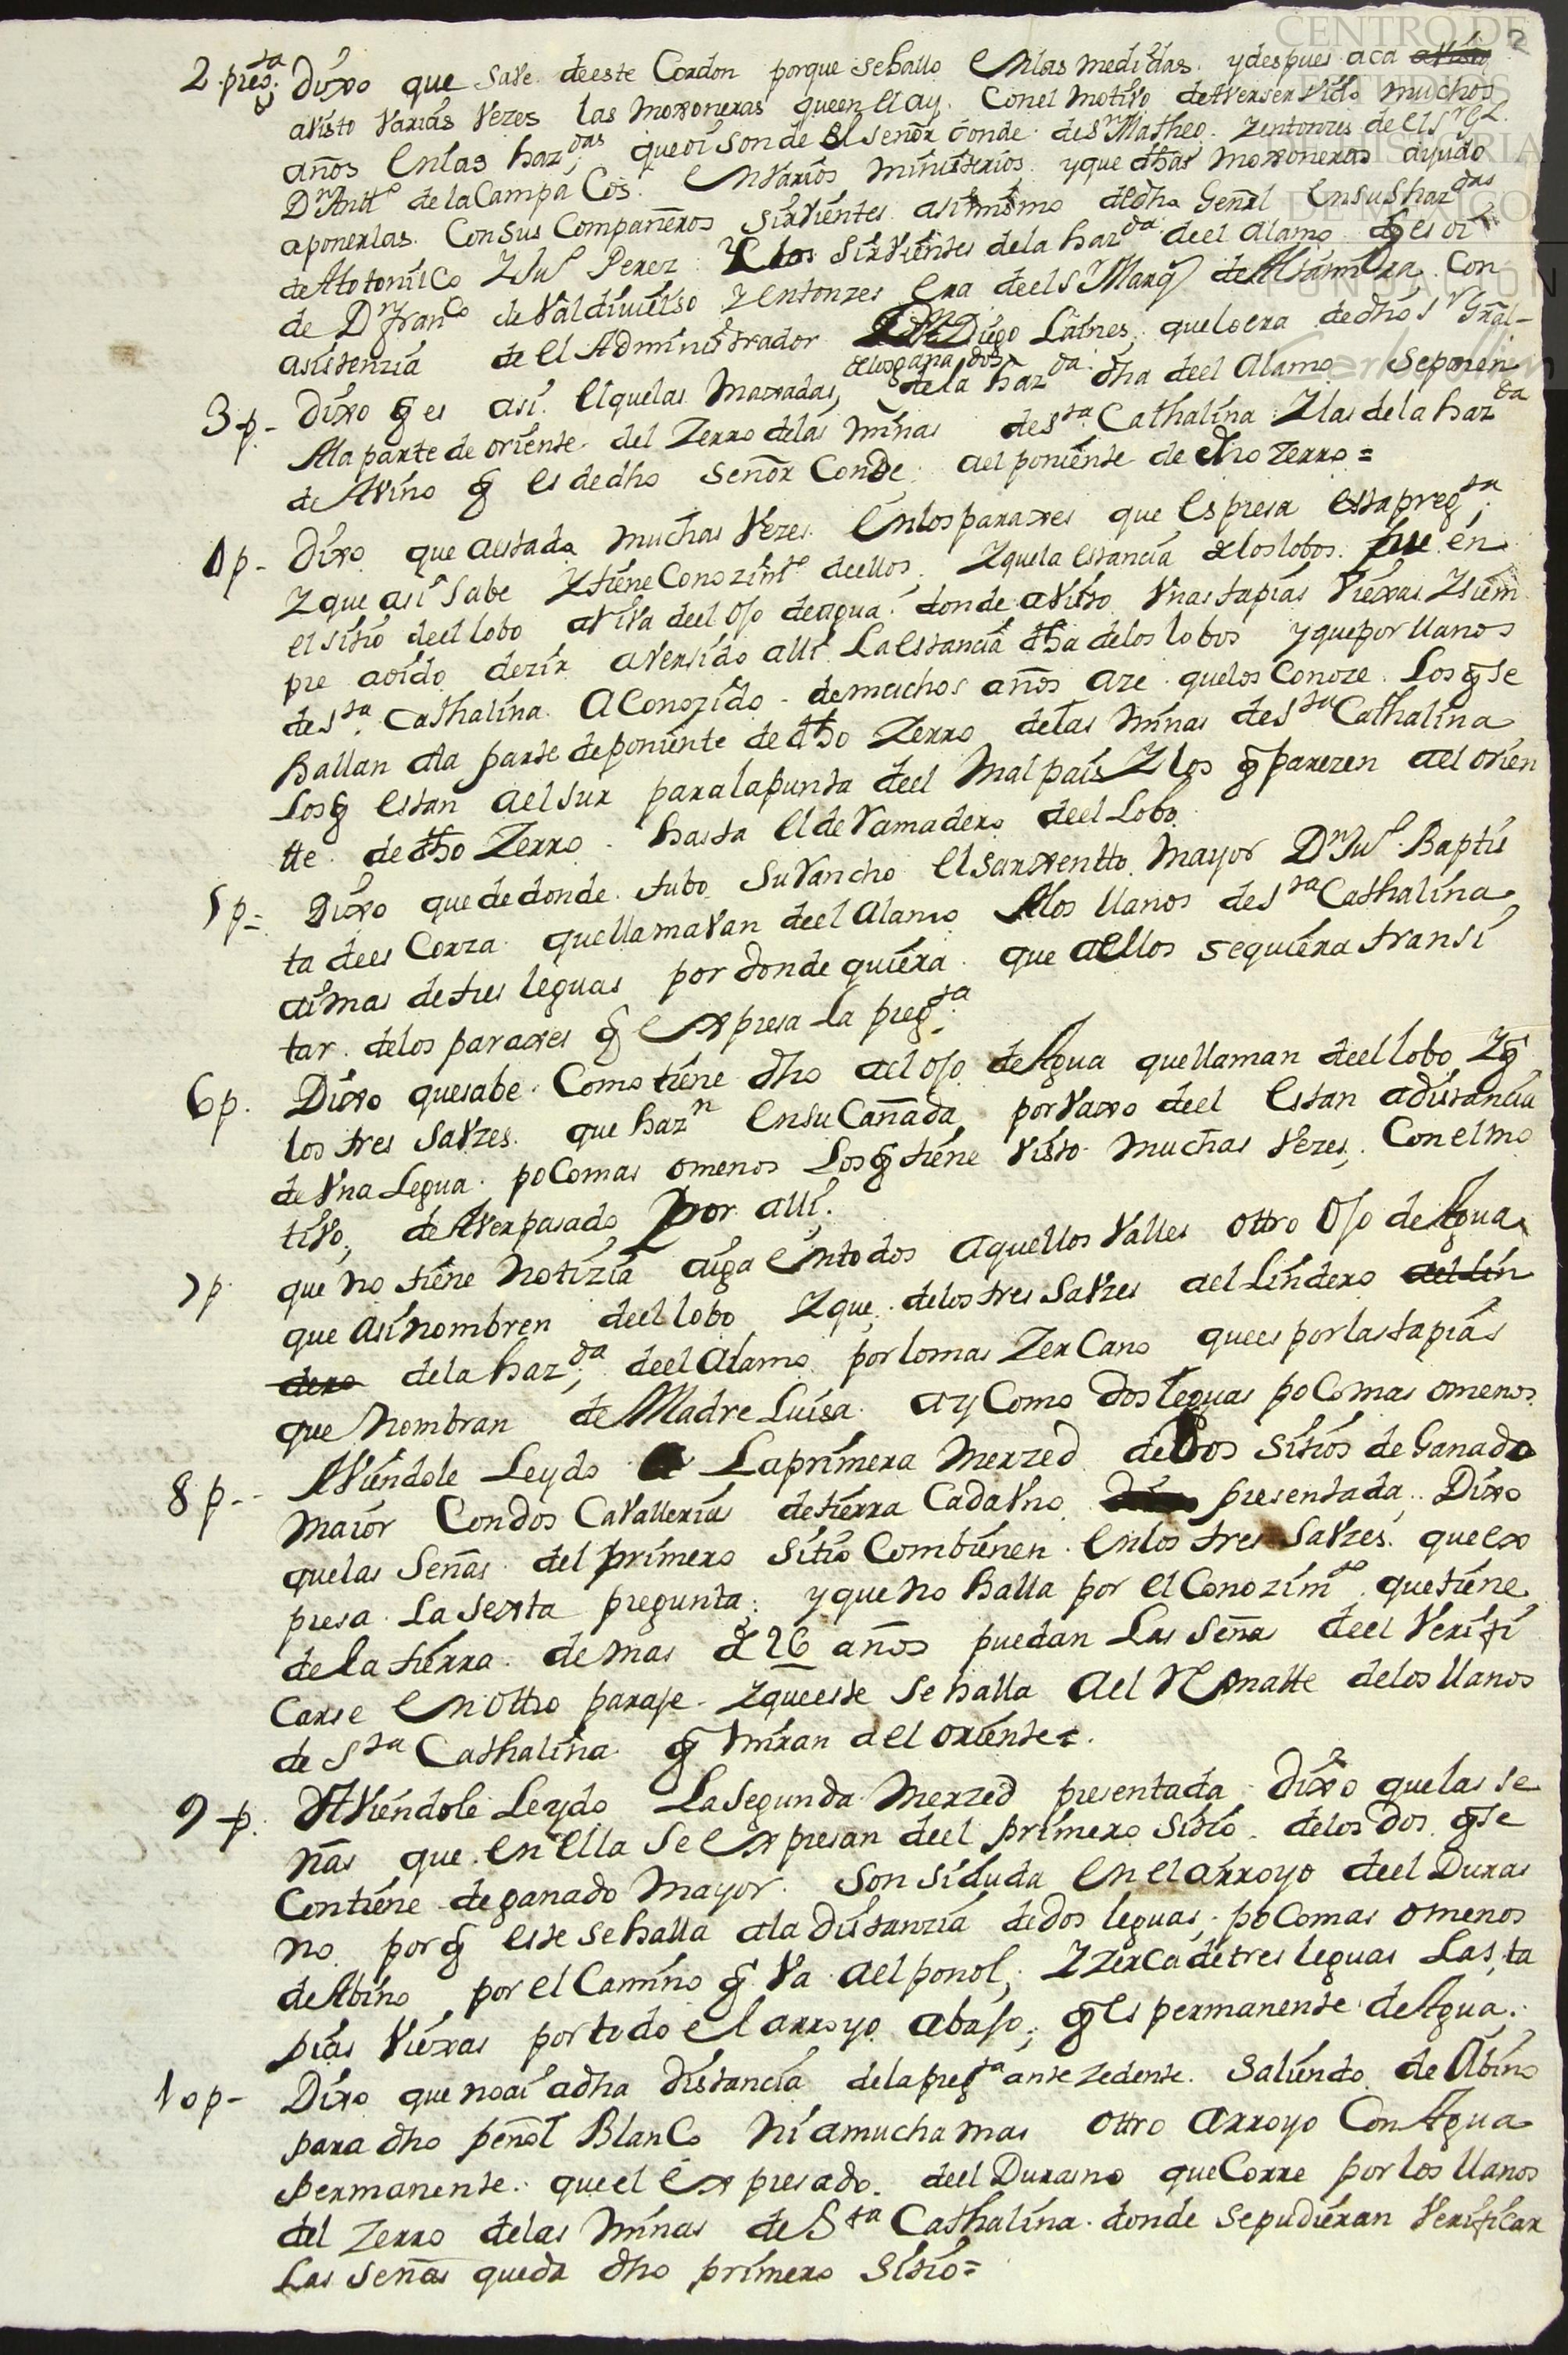 CENTRO DE
ESTUDIOS
DE HISTORIA
DE MÉXICO
FUNDACIÓN
2
2. pregta. Dixo que save deeste Cordon porque seballo Enlas medidas. ydespues aca avisto
avisto varias vezes las moxoneras queen el ay. Conel motivo deaverservido muchos
años Enlas hazdas. queoi sonde el señor conde de Sn Matheo. Zentonzes de el Sr Gl.
Dn Antto de la Campa Cos. Envarios ministerios. yque dhas moxoneras ayudo
aponerlas. Consus Compañeros sirvientes asimismo dedho Genrl Ensushazdas
de Atotonilco Y Jul Perez Y los sirvientes dela hazda deel alamo q es oi
de Dn Franco de Valdivielso Zentonzes era deel Sr Marq de Altamira. Con
asistenzia de el Administrador Diego Laines, queloera de dho Sr Gnral-
3 p- dixo q es asi. Elquelas maxadas, delosganados dela hazda. dha deel Alamo. seponen
Ala parte de oriente. del Zerro delas minas de Sta. Cathalina. Y las dela hazda
de Avino q es dedho señor Conde, ael poniente de dho Zerro =
4 p- dixo que aestado muchas vezes Enlosparaxes que Espresa estapregta.
Y que asi sabe Y tiene Conozimto deellos, Y quela estancia delos lobos. fue en
el sitio deel lobo arriva deel ojo deagua. donde avisto Vnas tapias Viexas. Y siem
pre aoido dezir aversido alli La estancia dha delos lobos yquepor llanos
de Sta. Cathalina. Aconozido. demuchos años aze quelos conoze. Los q se
hallan ala parte deponiente de dho Zerro delas minas de Sta Cathalina
Los q estan ael sur paralapunta deel malpais Y los q parezen ael orien
tte. de dho Zerro. hasta El de Ramadero deel Lobo
5 p= Dixo quededonde tubo Su Rancho El sarxentto Mayor Dn Jul. Baptis
ta dees Corza. quellamavan deel Alamo Alos llanos de Sta Cathalina
aimas detres leguas por donde quiera que aellos sequiera transi
tar. delos paraxes q Expresa la pregta.
6 p. Dixo quesabe. Como tiene dho ael ojo de Agua quellaman deellobo Y q
los tres savzes. que hazn EnsuCañada por vaxo deel Estan adistancia
de Vna Legua. poComas omenos Los q tiene Visto. muchas vezes, Con elmo
tivo, de Averpasado por alli.
7 p que no tiene notizia aiga Entodos aquellos Valles ottro ojo de Agua
que asi nombren deel lobo Y que. delos tres savzes ael Lindero ael lin
dero dela hazda. deel alamo por lomas ZerCano quees porlas tapias
que Nombran de Madre Luisa. ay Como dos leguas poComas omenos.
8 p-- Aviendole Leydo La primera Merzed de dos sitios de Ganado
maior Con dos Cavallerias detierra Cada Vno presentada. Dixo
quelas señas. del primero sitio Combienen. Enlos tres savzes. queex
presa. La sexta pregunta, yque no halla por el Conozimto. quetiene
dela tierra. demas de 26 años puedan Las señas deel Verifi
carse Enottro paraje. Y queeste se halla ael Rematte delos llanos
de Sta Cathalina q miran ael oriente=.
9 p. Aviendole Leydo La segunda Merzed presentada. dixo quelas se
ñas que. en Ella se Expresan deel primero sitio. delos dos. q se
Contiene deganado mayor. son siduda En el arroyo deel Duras
no por q este sehalla ala distanzia dedos leguas. poComas omenos
de Abino por el Camino q va ael ponol, Y zerca de tres leguas Las ta
pias Viexas portodo el arroyo abajo, q es permanente de Agua.
10 p- Dixo que noai adha distancia dela pregta antezedente. saliendo de Abino
para dho peñol Blanco Ni amucha mas ottro arroyo Con Agua
permanente. queel Expresado. deel Durasno queCorre por los llanos
del Zerro delas minas de Sta Cathalina. donde sepudieran Verificar
Las señas queda dho primero sitio=